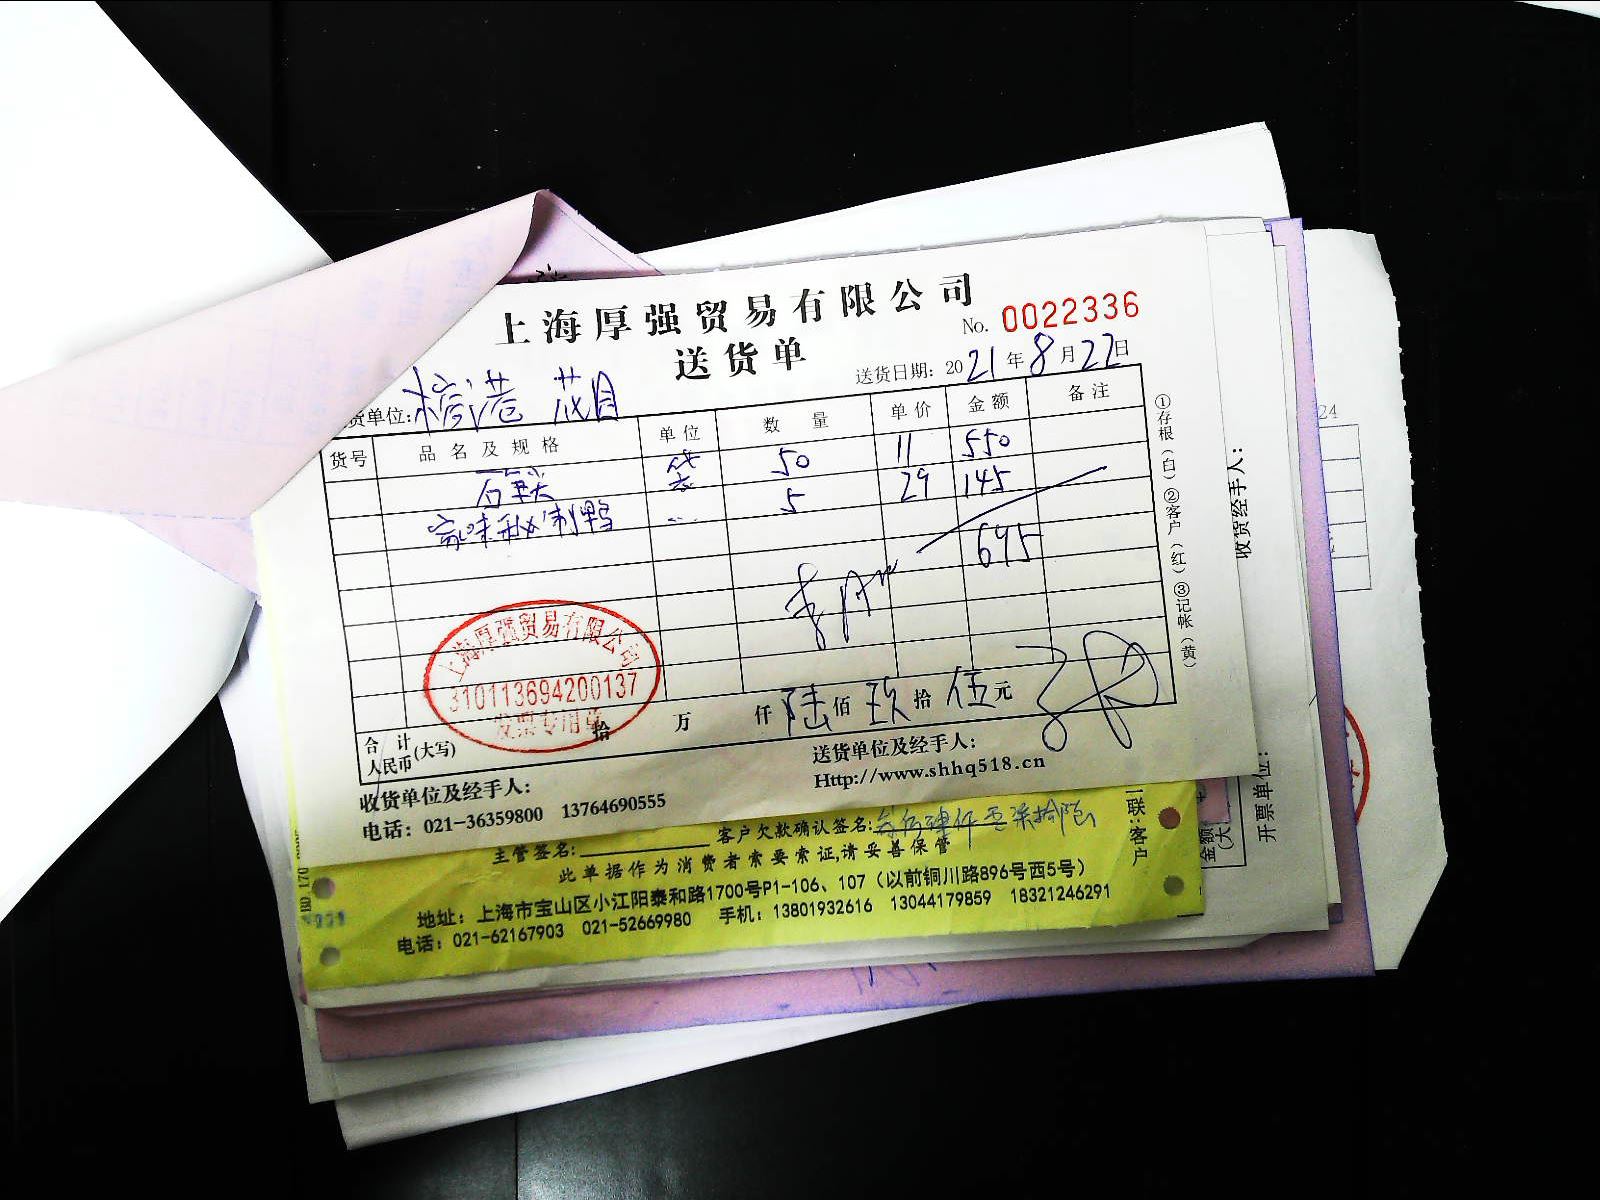 上海厚强贸易有限公司
No. 0022336
送货单
送货日期: 2021年8月22日
货单位:
货号 品名及规格 单位 数量 单价 金额 备注
袋 50 11 550
秘制鸭 5 29 145
695
①存根(白)②客户(红)③记帐(黄)
上海厚强贸易有限公司
310113694200137
发票专用章
合计人民币(大写) 拾 万 仟 陆 佰 玖 拾 伍 元
收货单位及经手人:
送货单位及经手人:
Http://www.shhq518.cn
电话: 021-36359800 13764690555
主管签名:
客户欠款确认签名:
此单据作为消费者索要索证,请妥善保管
地址: 上海市宝山区小江阳泰和路1700号P1-106、107 (以前铜川路896号西5号)
电话: 021-62167903 021-52669980 手机: 13801932616 13044179859 18321246291
联:客户
收货经手人:
开票单位:
金额
(大
24